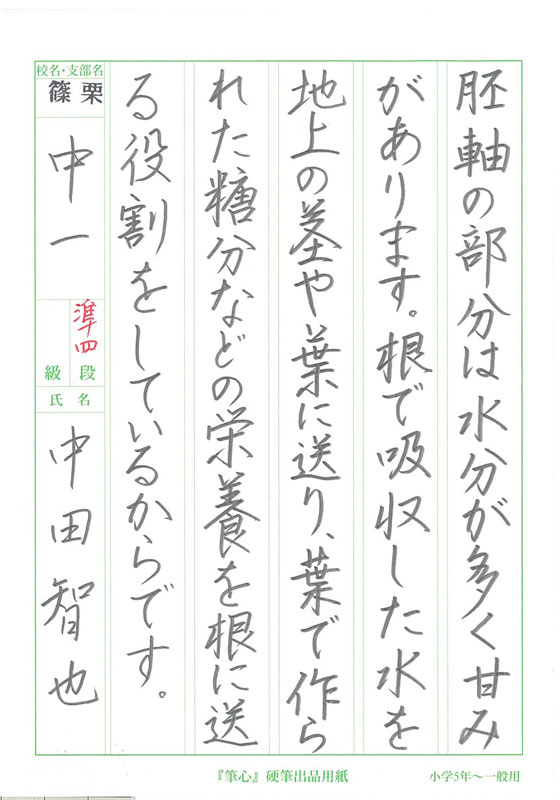 胚軸の部分は水分が多く甘み
があります。根で吸収した水を
地上の茎や葉に送り、葉で作ら
れた糖分などの栄養を根に送
る役割をしているからです。
校名・支部名
篠栗
中一
準四
段
級
氏名
中田智也
『筆心』硬筆出品用紙
小学5年〜一般用